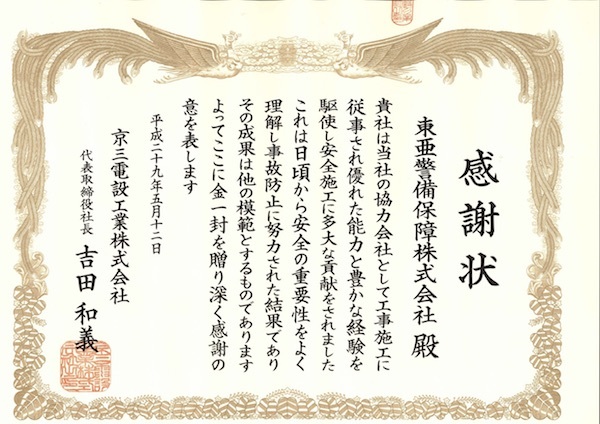 感謝状
東亜警備保障株式会社 殿
貴社は当社の協力会社として工事施工に
従事され優れた能力と豊かな経験を
駆使し安全施工に多大な貢献をされました
これは日頃から安全の重要性をよく
理解し事故防止に努力された結果であり
その成果は他の模範とするものであります
よってここに金一封を贈り深く感謝の
意を表します
平成二十九年五月十二日
京三電設工業株式会社
代表取締役社長 吉田 和義